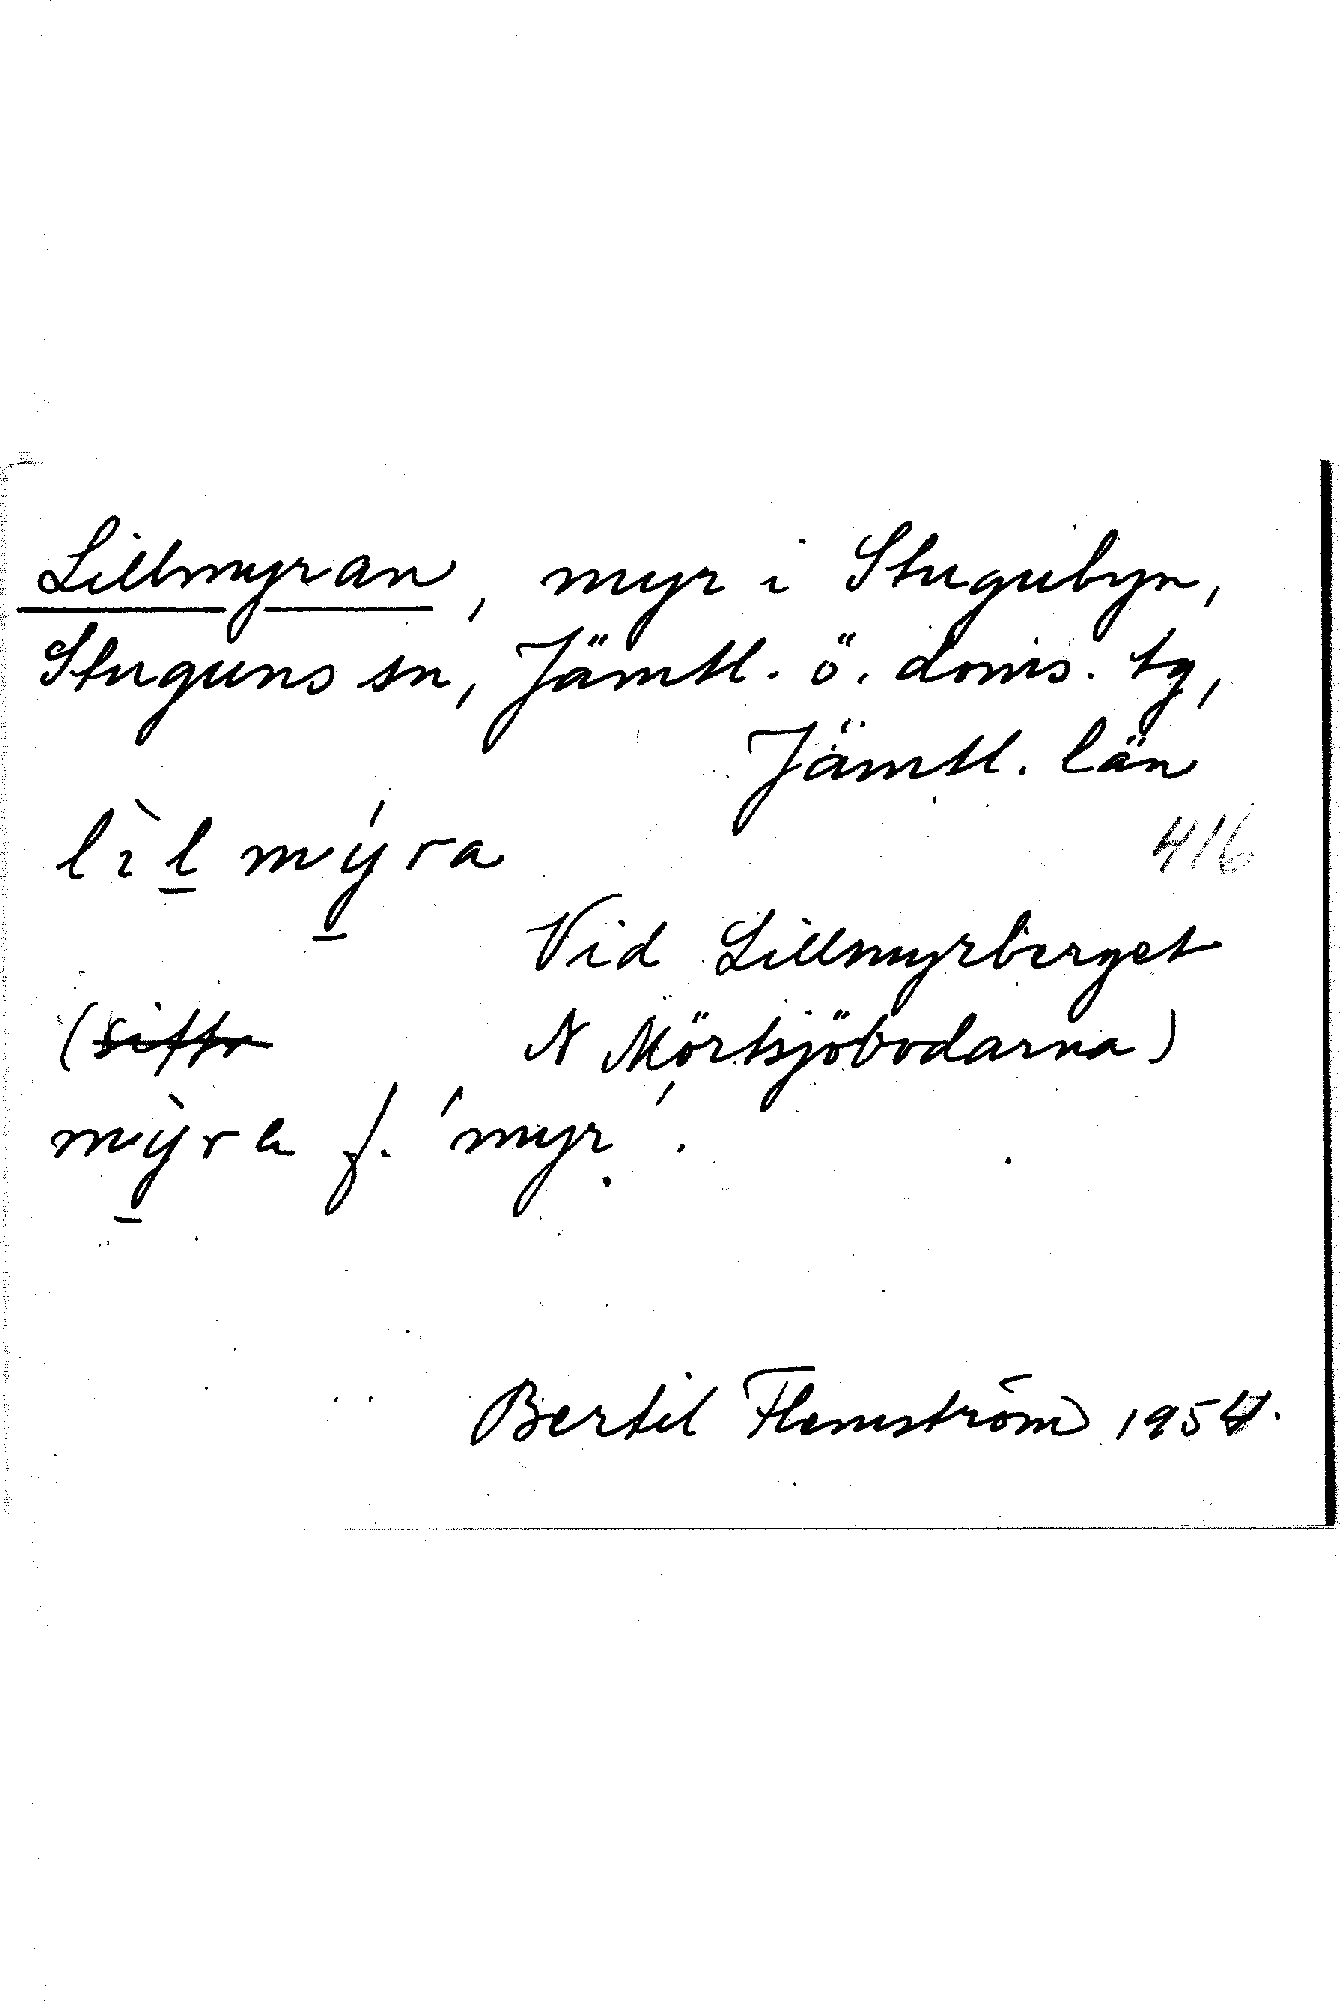 Lillmyran, myr i Stugubyn,
Stuguns sn, Jämtl. ö. doms. tg,
Jämtl. län
lìlmýra
416
Vid Lillmyrberget
(siffr N Mörtsjöbodarna)
mỳra f. 'myr'.
Bertil Flemström 1954.